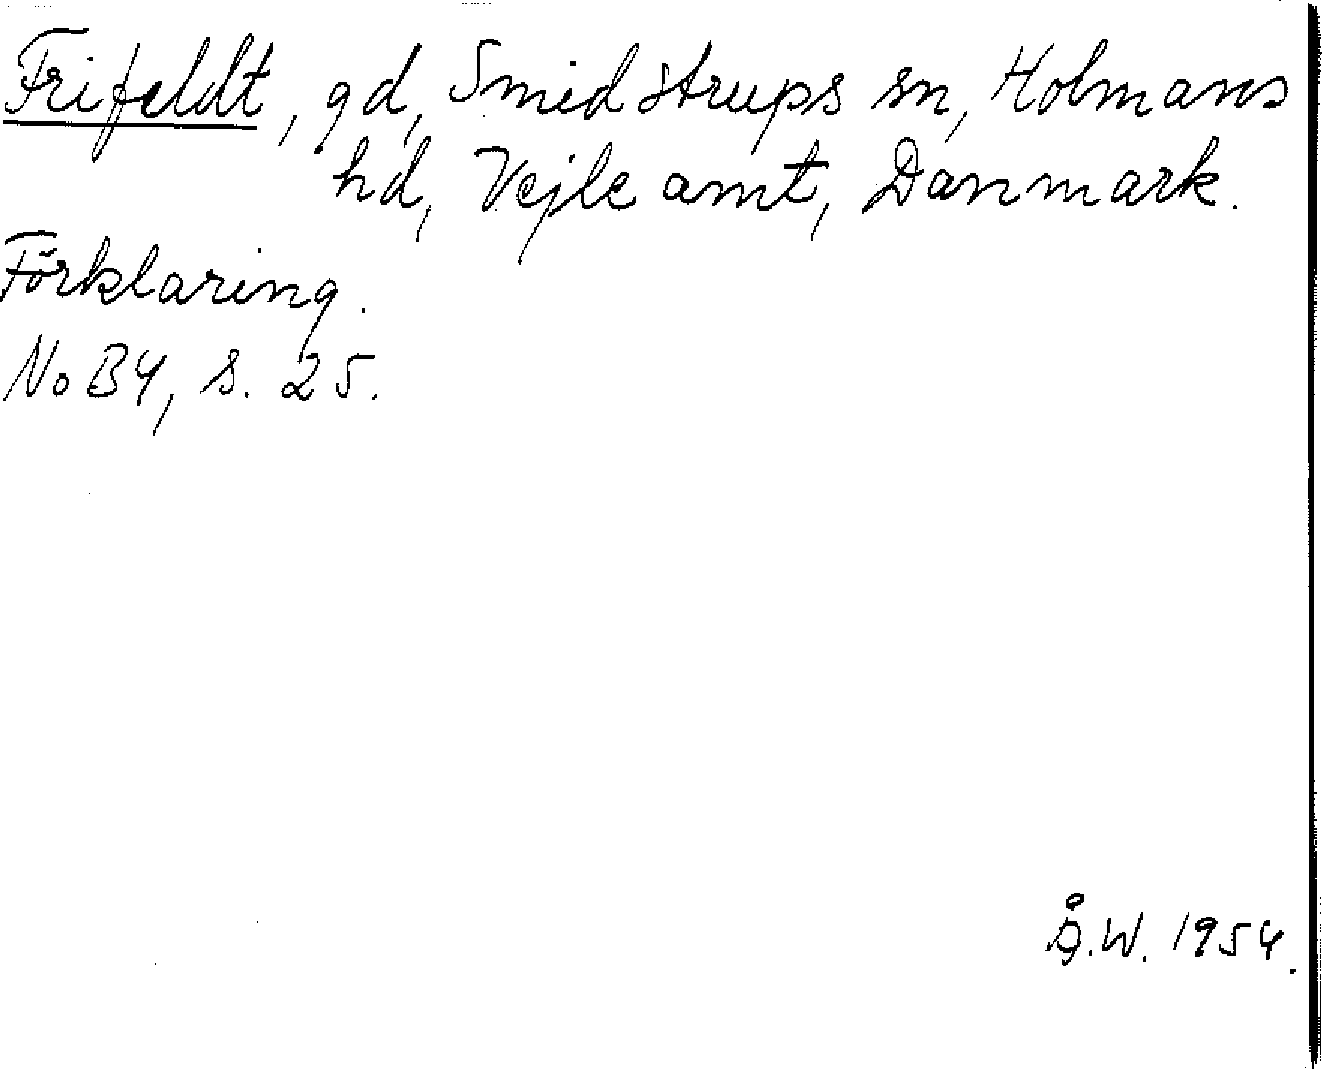 Frifeldt, gd, Smidstrups sn, Holmans
hd, Vejle amt, Danmark.
Förklaring.
No B4, s. 25.
Å.W. 1954.